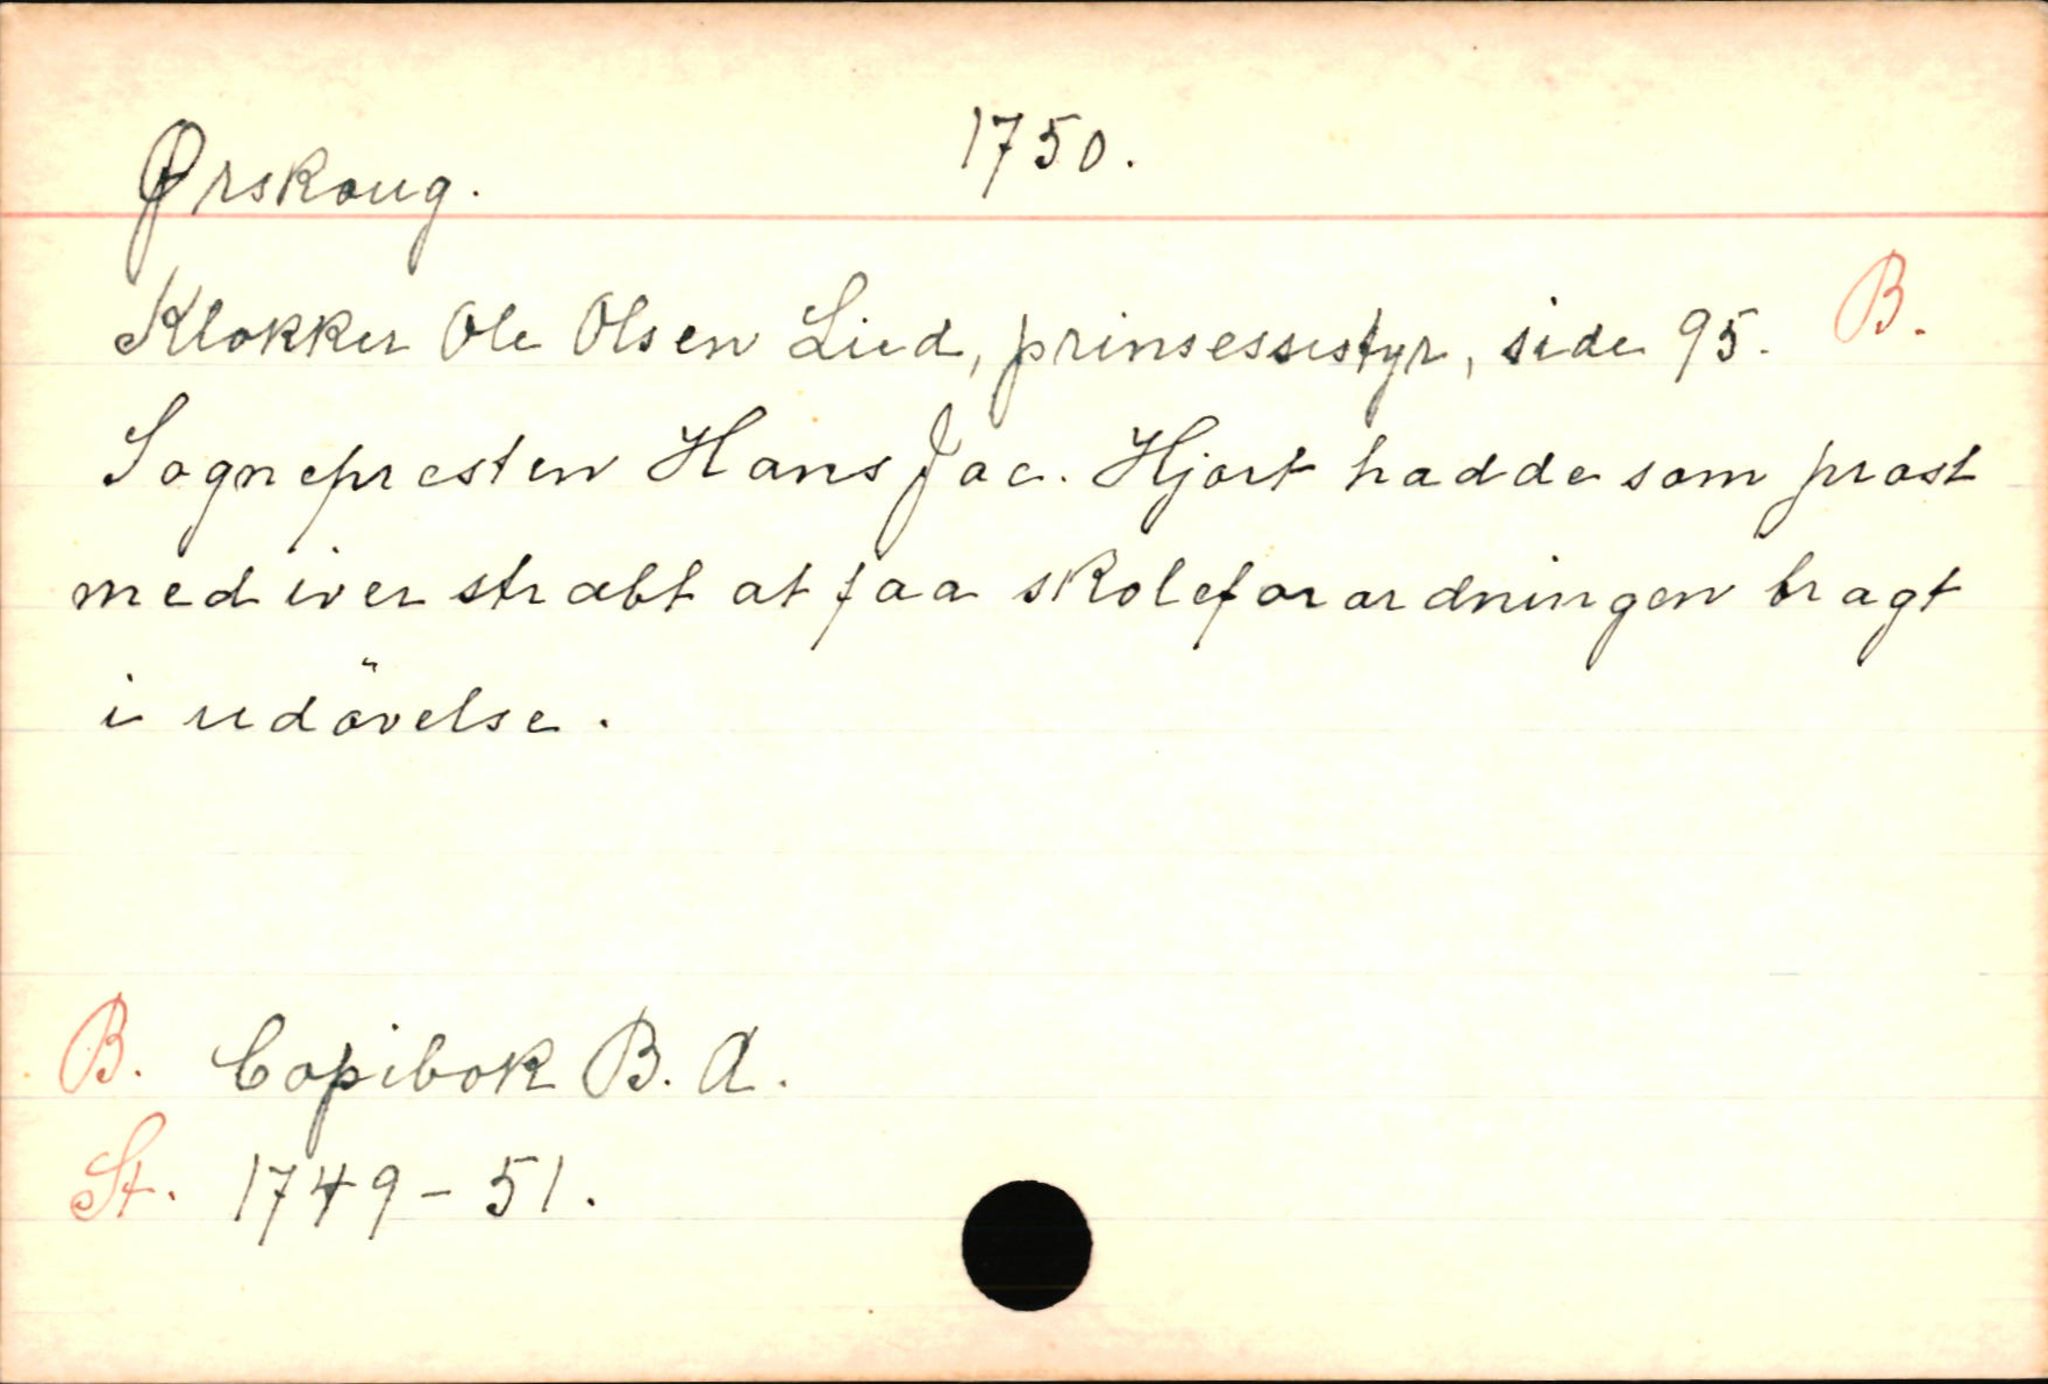 Ørskoug. 1750.
Klokker Ole Olsen Lied, prinsessestyr, side 95. B.
Sognepresten Hans Jac. Hjort hadde som prost
med iver stræbt at faa skoleforordningen bragt
i udövelse.
B. Copibok B. A.
St. 1749-51.